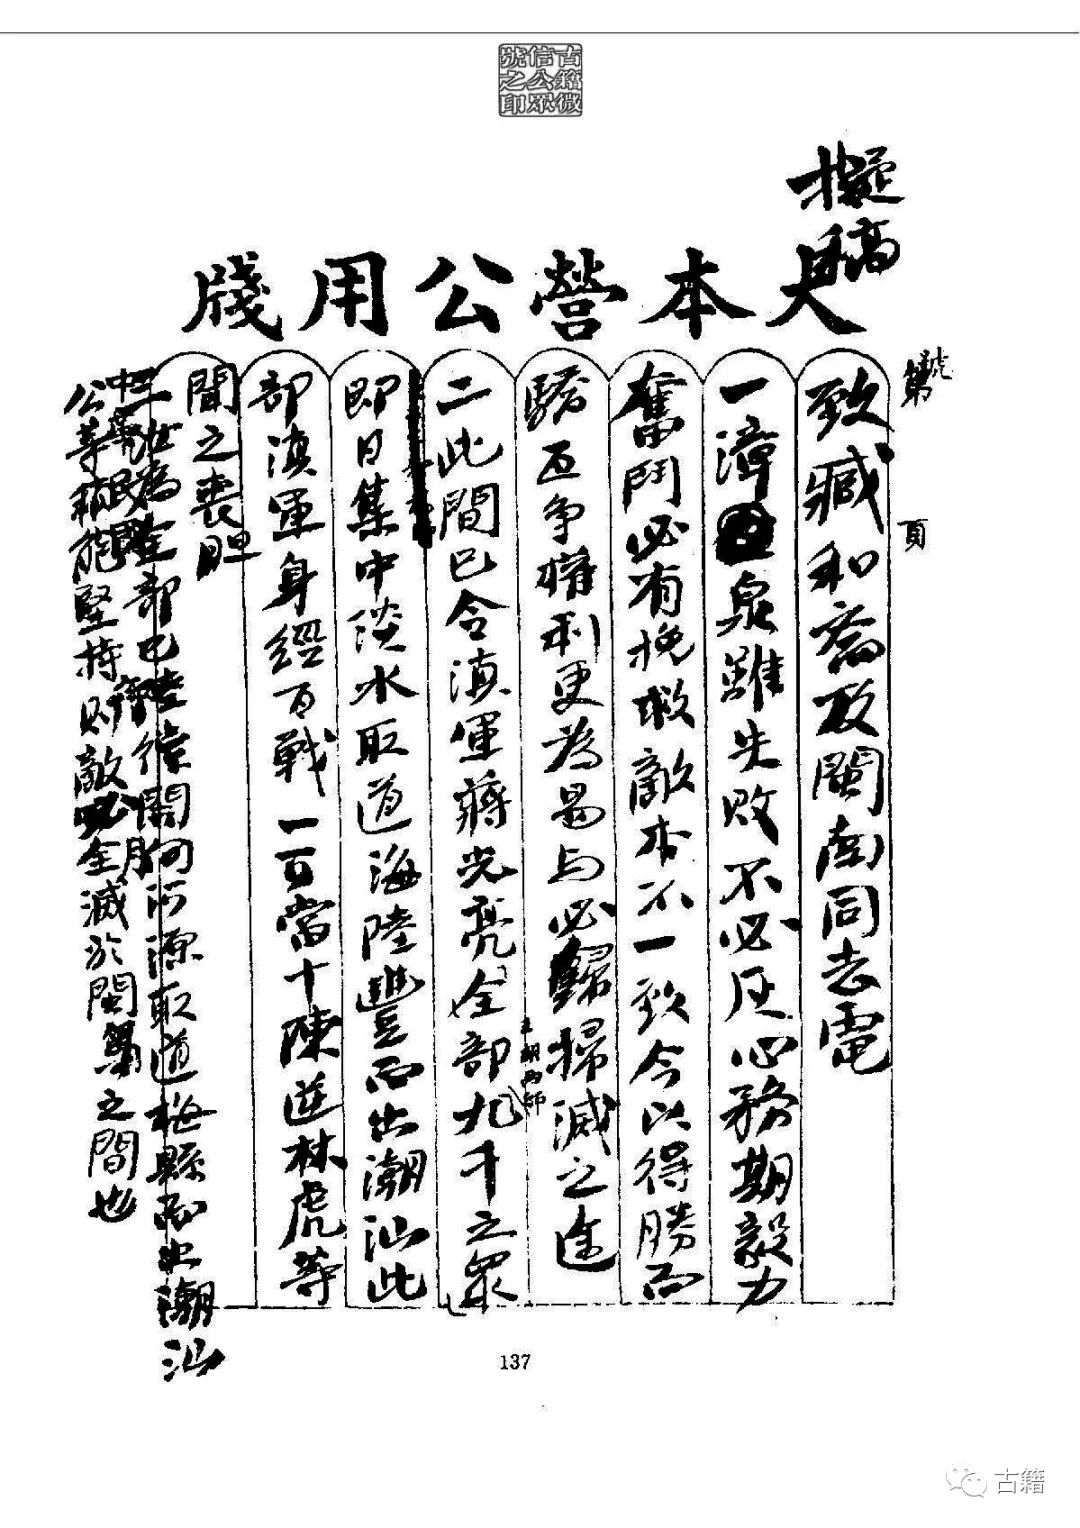 古籍微
信公眾
號之印
擬稿
大本營公用牋
第 號
頁
致臧和齋及閩南同志電
一漳泉雖失敗不必灰心務期毅力
奮鬥必有挽救敵本不一致今以得勝而
驕互爭權利更為易与必歸掃滅之途
二此間已令滇軍蔣光亮全部九千之眾
王胡两師
即日集中淡水取道海陸豐而出潮汕此
部滇軍身經百戰一百當十陳逆林虎等
聞之喪胆
三 全部已陸續開向河源取道梅縣而出潮汕
公等稍能堅持則敵必全滅於閩粵之間也
中華民國
137
古籍